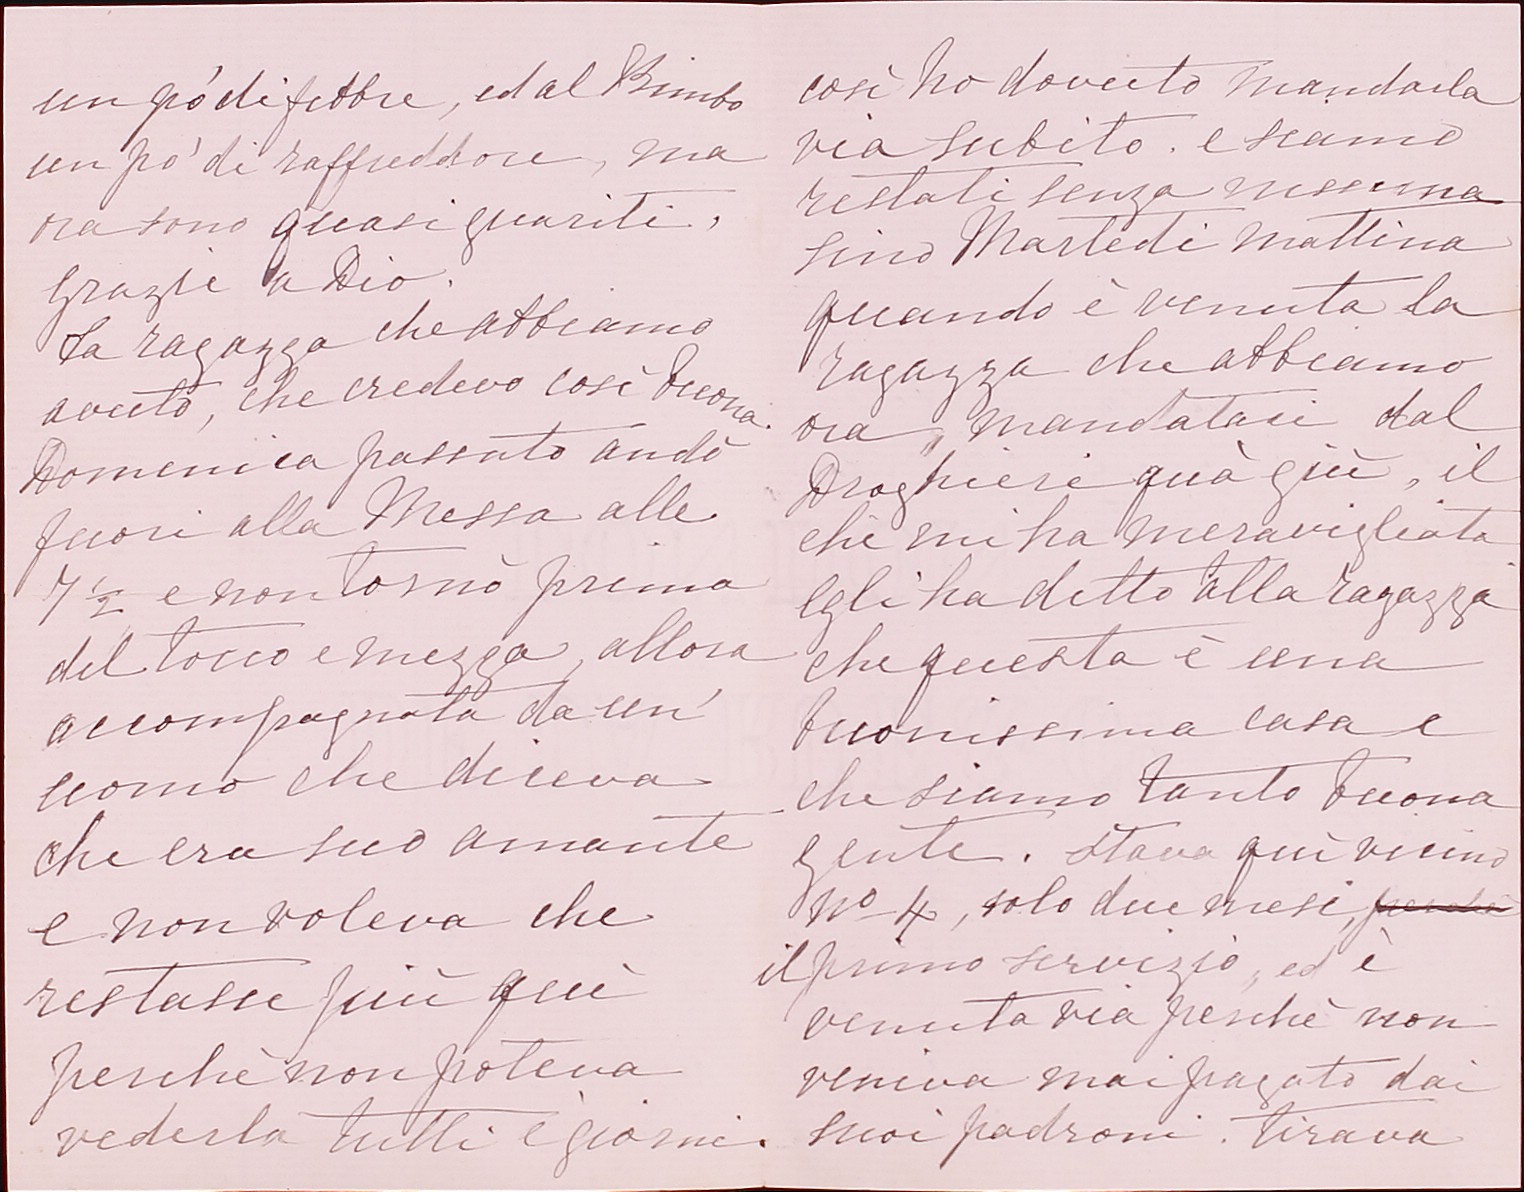 un pó di febbre, ed al Bimbo
un po' di raffreddore, ma
ora sono quasi guariti,
grazie a Dio.
La ragazza che abbiamo
avuto, che credevo così buona.
Domenica passato andò
fuori alla Messa alle
7 ½ e non tornò prima
del tocco e mezza, allora
accompagnata da un'
uomo che diceva
che era suo amante
e non voleva che
restasse più quì
perchè non poteva
vederla tutti i giorni.
così ho dovuto mandarla
via subito. e siamo
restati senza nessuna
sino Martedì mattina
quando è venuta la
ragazza che abbiamo
ora, mandataci dal
Droghiere quà giù, il
chè mi ha meravigliata
Egli ha detto alla ragazza
che questa è una
buonissima casa e
che siamo tanto buona
gente. Stava quì vicino
No 4, solo due mesi, perchè
il primo servizio, ed è
venuta via perchè non
veniva mai pagato dai
suoi padroni. tirava